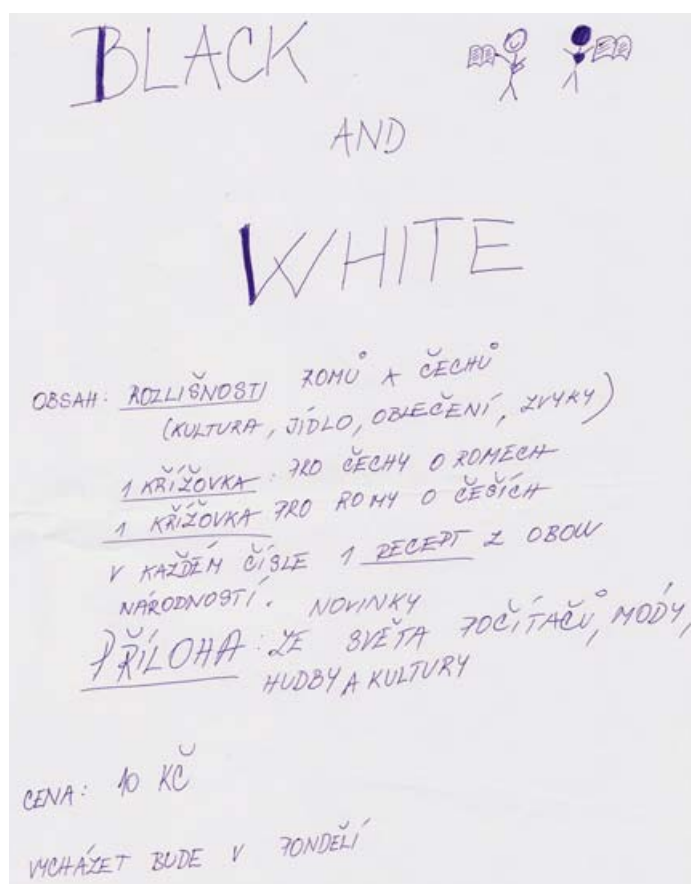 BLACK
AND
WHITE
OBSAH: ROZLIŠNOSTI ROMŮ A ČECHŮ
(KULTURA, JÍDLO, OBLEČENÍ, ZVYKY)
1 KŘÍŽOVKA: PRO ČECHY O ROMECH
1 KŘÍŽOVKA PRO ROMY O ČEŠÍCH
V KAŽDÉM ČÍSLE 1 RECEPT Z OBOU
NÁRODNOSTÍ. NOVINKY
PŘÍLOHA: ZE SVĚTA POČÍTAČŮ, MÓDY,
HUDBY A KULTURY
CENA: 10 KČ
VYCHÁZET BUDE V PONDĚLÍ